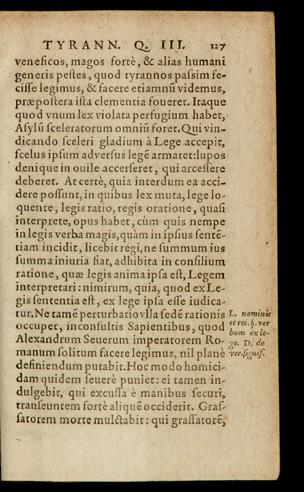 TYRANN. Q. III. 127
veneficos, magos fortè, & alias humani
generis pestes, quod tyrannos passim fe-
cisse legimus, & facere etiamnū videmus,
præpostera ista clementia foueret. Itaque
quod vnum lex violata perfugium habet,
Asylū sceleratorum omniū foret. Qui vin-
dicando sceleri gladium à Lege accepit,
scelus ipsum adversus legē armaret: lupos
denique in ouile accerseret, qui arcessere
deberet. At certè, quia interdum ea acci-
dere possunt, in quibus lex muta, lege lo-
quente, legis ratio, regis oratione, quasi
interprete, opus habet, cùm quis nempe
in legis verba magis, quàm in ipsius sentē-
tiam incidit, licebit regi, ne summum ius
summa iniuria fiat, adhibita in consilium
ratione, quæ legis anima ipsa est, Legem
interpretari: nimirum, quia, quod ex Le-
gis sententia est, ex lege ipsa esse iudica-
tur. Ne tamē perturbatio vlla sedē rationis
occupet, inconsultis Sapientibus, quod
Alexandrum Seuerum imperatorem Ro-
manum solitum facere legimus, nil planè
definiendum putabit. Hoc modo homici-
dam quidem seuerè puniet: ei tamen in-
dulgebit, qui excussa è manibus securi,
transeuntem fortè aliquē occiderit. Gras-
satorem morte mulctabit: qui grassatorē,
L. nominis
et rei. §. ver
bum ex le-
ge. D. de
ver. signif.